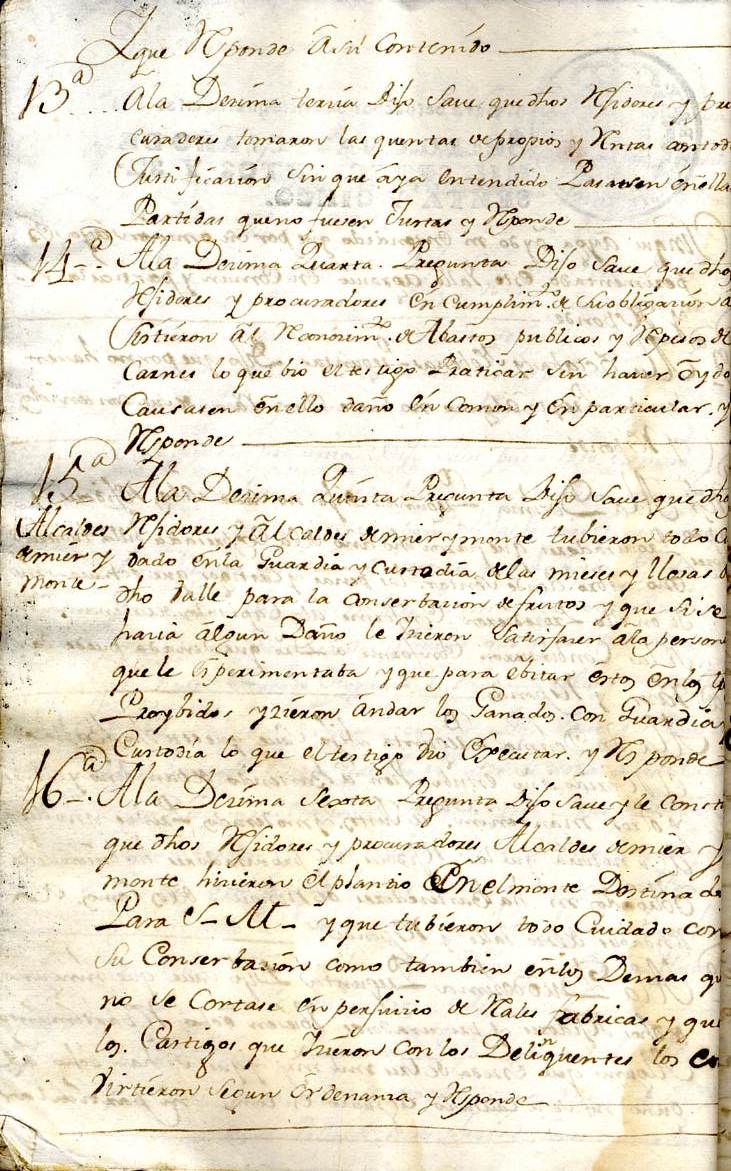 Y que Responde â su Contenido
13ª Ala Dezima terzia Dijo Save que dhos Rejidores y pro
curadores tomaron las quentas de propios y Rentas con tod
Justificazion sin que âya entendido Pasasen ên ella
Partidas que no fuesen Justas y Responde
14ª Ala Dezima Quarta Pregunta Dijo Save que dhos
Rejidores y procuradores en Cumplimto de su obligazion a
sistieron al Reconozimto de Abastos publicos y Repesos de
Carnes lo que bio el testigo Praticar sin haver oydo
Causasen ên ello daño ên Comun y ên particular. y
Responde
15ª Ala Dezima Quinta Pregunta Dijo Save que dho
Alcaldes de mier y monte
Rejidores y Alcaldes de mier y monte tubieron todo C
dado ên la Guardia y Custodia de las mieses y llosas d
dho Valle para la Conserbazion de frutos y que si se
hazia âlgun Daño le hizieron satisfazer âla person
que le êsperimentaba y que para êbitar êstos ên los
Proybidos yzieron ândar los Ganados. con Guardia
Custodia lo que el testigo bio Executar. y Responde
16ª Ala Dezima Sexta Pregunta Dijo Save y le Consta
que dhos Rejidores y procuradores Alcaldes de mier y
monte hizieron êl plantio ên el monte Destinado
Para S. M. y que tubieron todo Cuidado con
su Conserbazion como tambien ên los Demas qu
no se Cortase ên perjuizio de Rales fabricas y que
los Castigos que hizieron con los Delinquentes los con
birtieron segun ôrdenanza y Responde